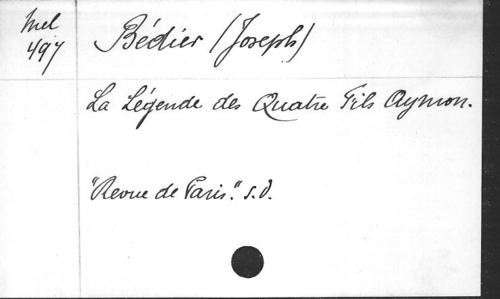 Mel
497
Bédier (Joseph)
La Légende des Quatre Fils Aymon.
"Revue de Paris". s.d.